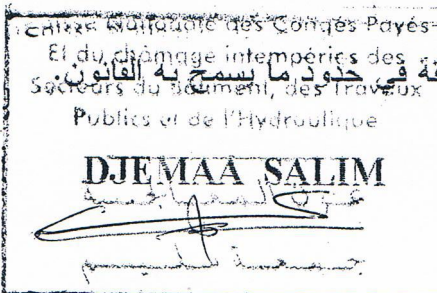 Caisse Nationale des Congés Payés
Et du chômage intempéries des
ة في حدود ما يسمح به القانون.
Secteurs du Bâtiment, des Travaux
Publics et de l'Hydraulique
DJEMAA SALIM
جمعة سليم